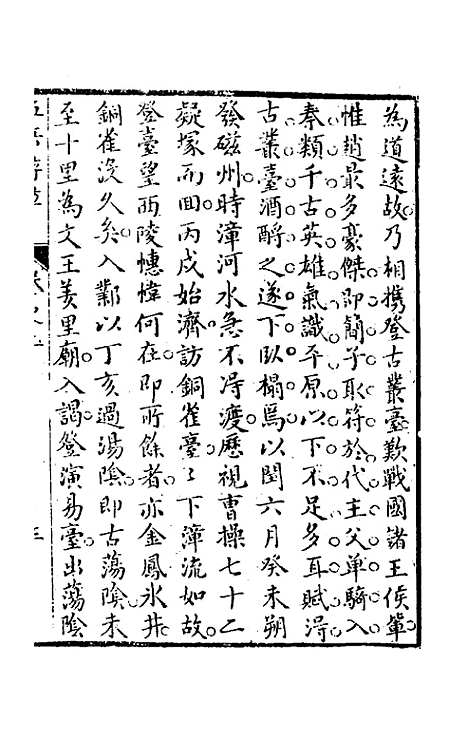 為道遠故乃相攜登古叢臺歎戰國諸王侯單
惟趙最多豪傑即簡子取符於代主父單騎入
秦類千古英雄氣識平原以下不足多耳賦得
古叢臺酒酹之遂下臥榻焉以閏六月癸未朔
發磁州時漳河水急不得渡歷視曹操七十二
疑塚而回丙戌始濟訪銅雀臺〻下漳流如故
登臺望西陵幰幃何在即所餘者亦金鳳氷井
銅雀沒久矣入鄴以丁亥過湯陰即古蕩陰未
至十里為文王羑里廟入謁登演易臺出蕩陰